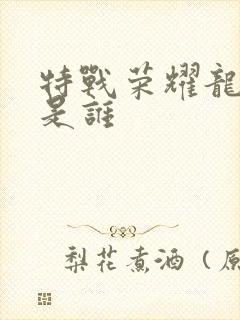 特戰荣耀龍
是誰
梨花煮酒（原